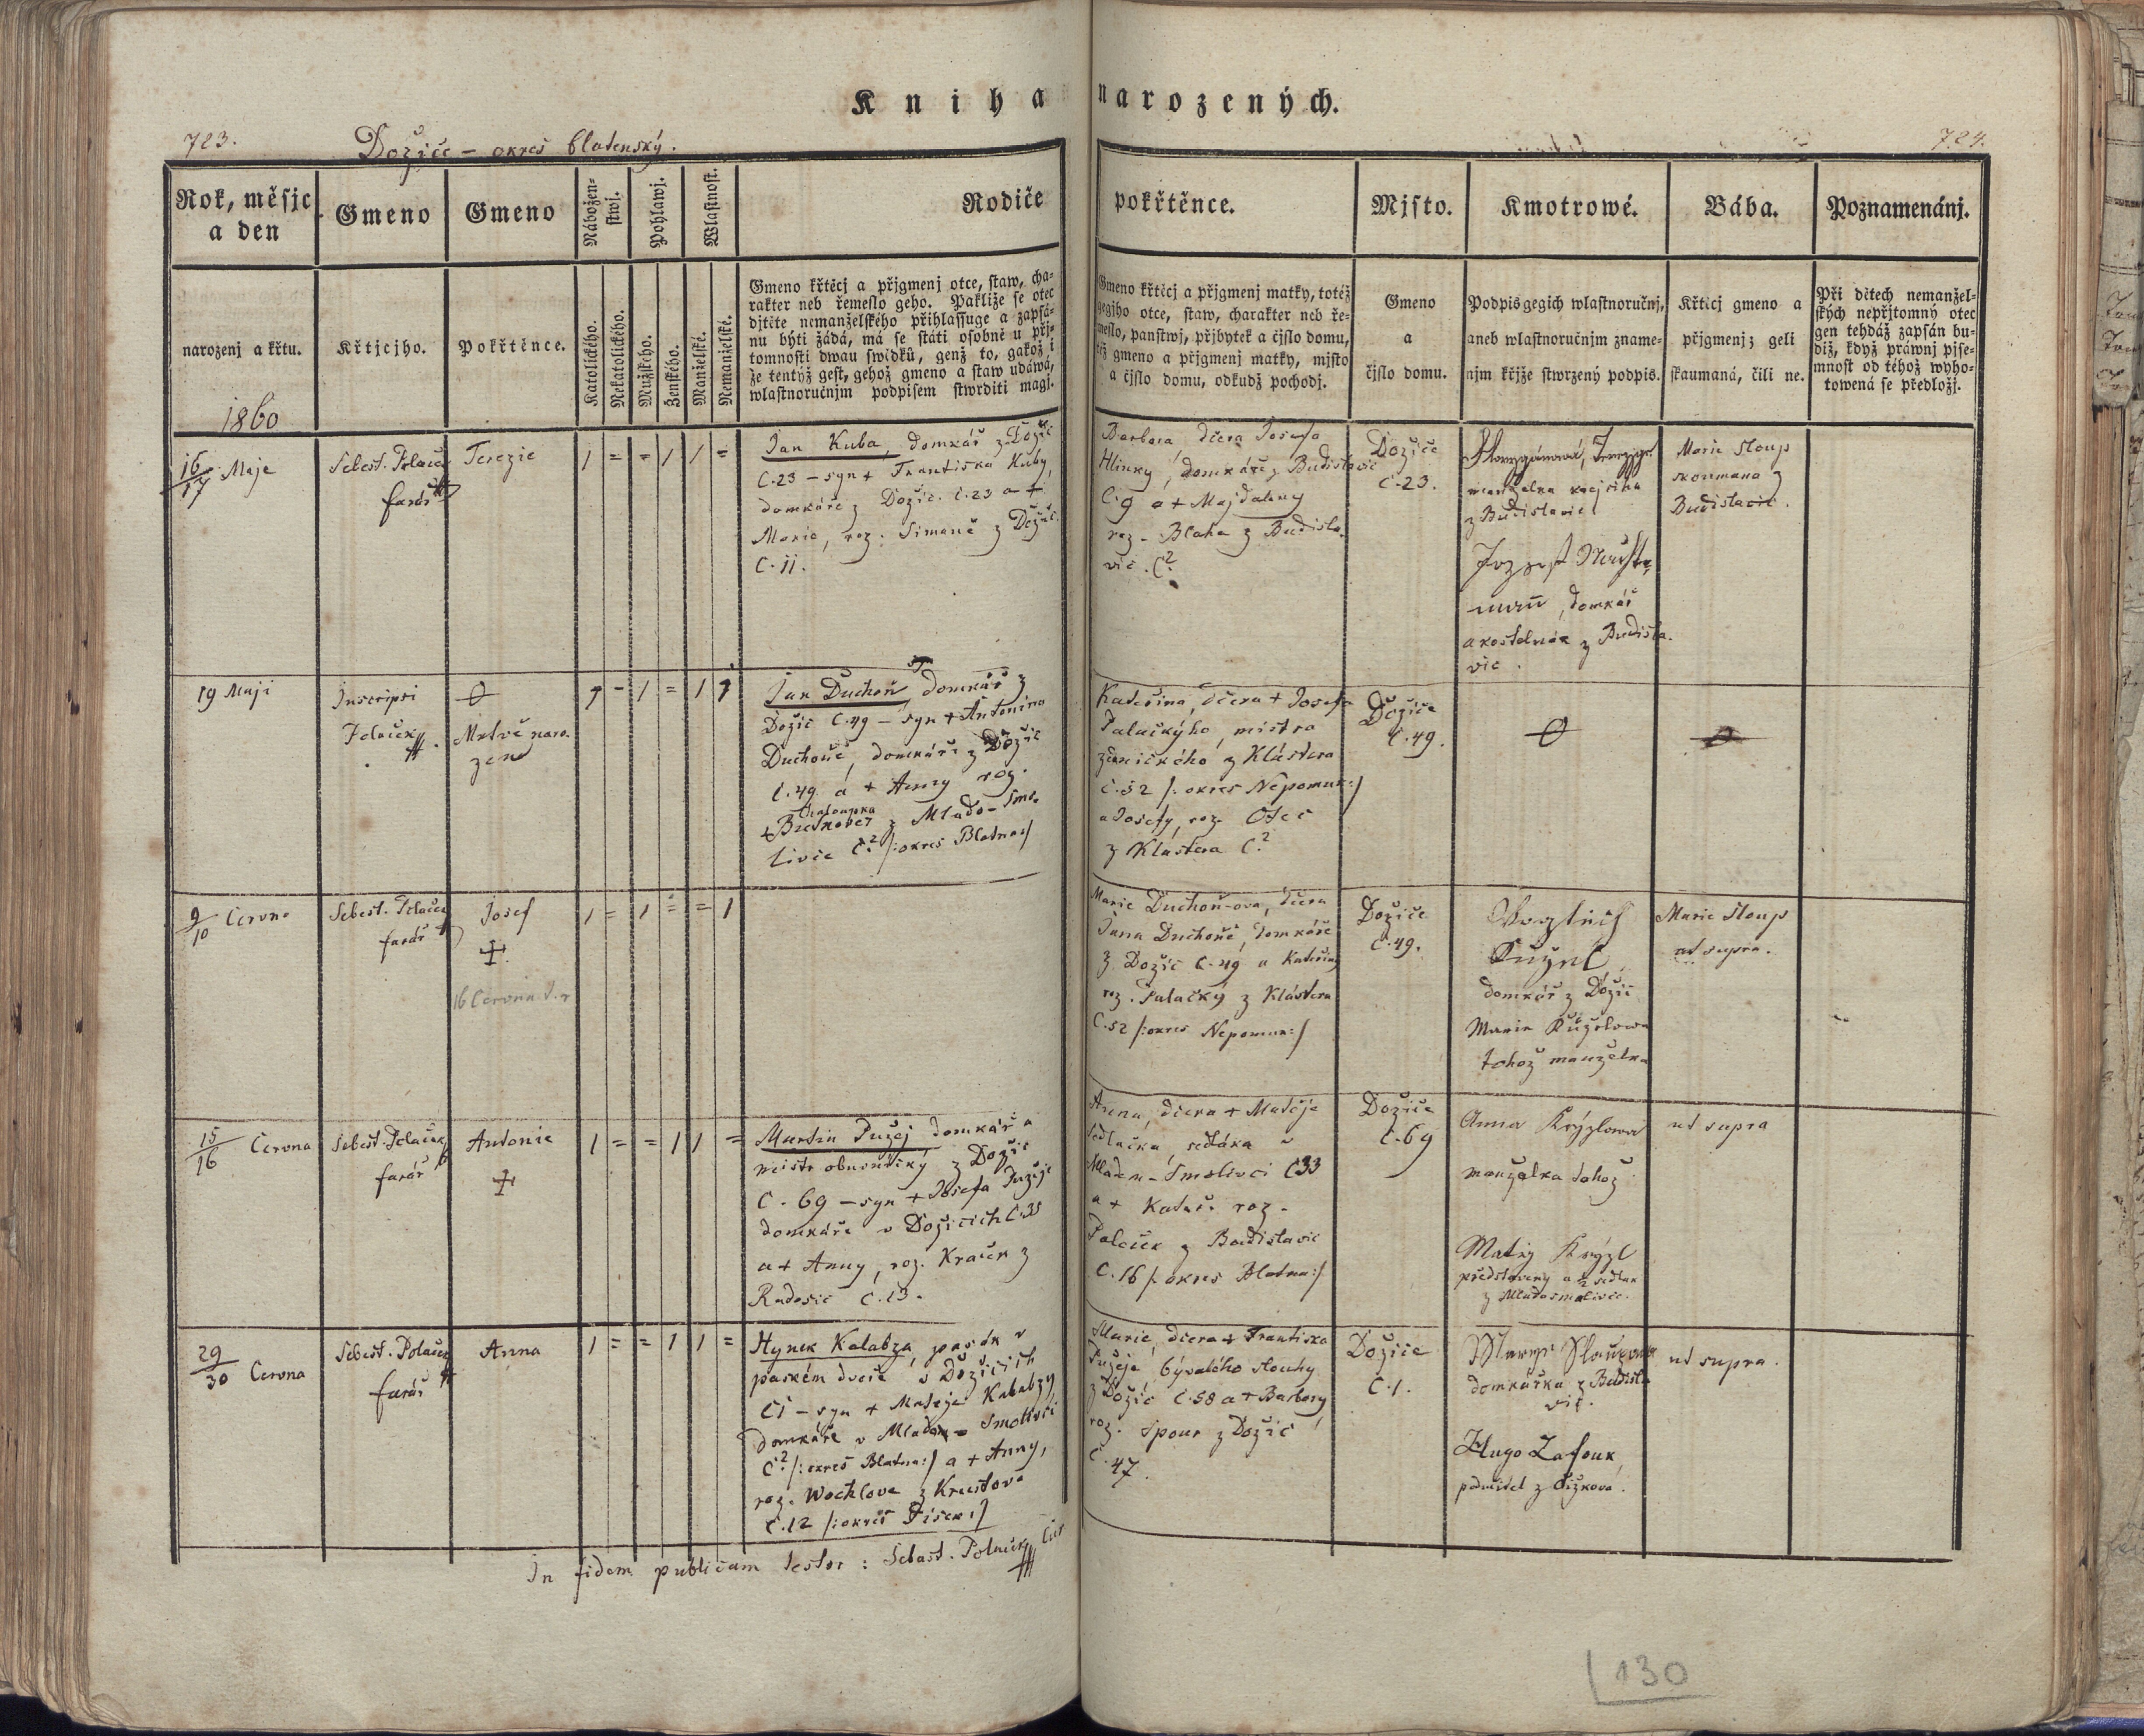 Kniha narozených.
723.
Dožice – okres blatenský.
724.
Rok, měsjc
a den
Gmeno
Gmeno
Nábožen-
stwj.
Pohlawj.
Wlastnost.
Rodiče pokřtěnce.
Mjsto.
Kmotrowé.
Bába.
Poznamenánj.
narozenj a křtu.
1860
Křtjcjho.
Pokřtěnce.
Katolického.
Nekatolického.
Mužského.
Ženského.
Manželské.
Nemanželské.
Gmeno křtěcj a přjgmenj otce, staw, cha-
rakter neb řemeslo geho. Pakliže se otec
djtěte nemanželského přihlassuge a zapsá-
nu býti žádá, má se státi osobně u přj-
tomnosti dwau swědků, genž to, gakož i
že tentýž gest, gehož gmeno a staw udáwá,
wlastnoručnjm podpisem stwrditi magj.
Gmeno křtěcj a přjgmenj matky, totéž
gegjho otce, staw, charakter neb ře-
meslo, panstwj, přjbytek a čjslo domu,
též gmeno a přjgmenj matky, mjsto
a čjslo domu, odkudž pochodj.
Gmeno
a
čjslo domu.
Podpis gegich wlastnoručnj,
aneb wlastnoručnjm zname-
njm křjže stwrzený podpis.
Křtěcj gmeno a
přjgmenj; geli
skaumaná, čili ne.
Při dětech nemanžel-
ských nepřjtomný otec
gen tehdáž zapsán bu-
diž, když práwnj pjse-
mnost od téhož wyho-
towená se předložj.
16/17 Maje
Sebest. Polaček
farář
Terezie
1 = = 1 1 =
Jan Kuba, domkář z Dožic
č.23 – syn + Františka Kuby,
domkáře z Dožic č.23 a +
Marie, roz. Šimaně z Dožic
č.11.
Barbora, dčera Josefa
Hlinky, domkáře z Budislavic
č.9 a + Majdaleny
roz. Blaha z Budisla-
vic. č.?
Dožice
č.23.
manželka krejčího
z Budislavic
domkář
a kostelník z Budisla-
vic.
Marie Sloup
skoumana z
Budislavic.
19 Maji
Inscripsi
Polaček
Mrtvě naro-
zen
Jan Duchoň, domkář z
Dožic č.49 – syn + Antonína
Duchoně, domkáře z Dožic
č.49 a + Anny roz.
Chaloupka
z Mlado-Smo-
livic č.? /:okres Blatna:/
Kateřina, dčera + Josefa
Palačkýho, mistra
zednického z Kláštera
č.52 /: okres Nepomuk:/
a Josefy, roz. Otec
z Kláštera č.?
Dožice
č.49.
9/10 Června
Sebest. Polaček
farář
Josef
16 Června
1 = 1 = = 1
Marie Duchoň-ova, dčera
Jana Duchoně, domkáře
z Dožic č.49 a Kateřiny
roz. Palačký z Kláštera
č.52 /:okres Nepomuk:/
Dožice
č.49.
domkář z Dožic
Marie Kůželowa
tohož manželka
Marie Sloup
ut supra.
15/16 Června
Sebest. Polaček
farář
Antonie
1 = = 1 1 =
Martin Pužej domkář a
mistr obuvnický z Dožic
č. 69 – syn + Josefa Pužeje
domkáře v Dožicích č.35
a + Anny, roz. Kraček z
Radošic č.13.
Anna, dčera + Matěje
Sedlačka, sedláka v
Mladém-Smolivci č33
a + Kateř. roz.
Polček z Budislavic
č.16 /: okres Blatna:/
Dožice
č.69
Anna Krýzlowa
manželka tohož
Matěj Krýzl
představený a ½ sedlák
z Mladosmolivic.
ut supra
29/30 Června
Sebest. Polaček
farář
Anna
1 = = 1 1 =
Hynek Kalabza, pasák v
panském dvoře v Dožicích
č1 – syn + Matěje Kalabzy
domkáře v Mladém-Smolivci
č.? /:okres Blatna:/ a + Anny,
roz. Wochlova z Krastova
č.12 /:okres Písek:/
Marie, dčera + Františka
Pužeje, bývalého slouhy
z Dožic č.58 a + Barbory
roz. Spour z Dožic
č.47.
Dožice
č.1.
domkářka z Budisla-
vic.
Hugo Zafouk,
podučitel z Čížkova.
ut supra.
In fidem publicam testor: Sebast. Polaček
130